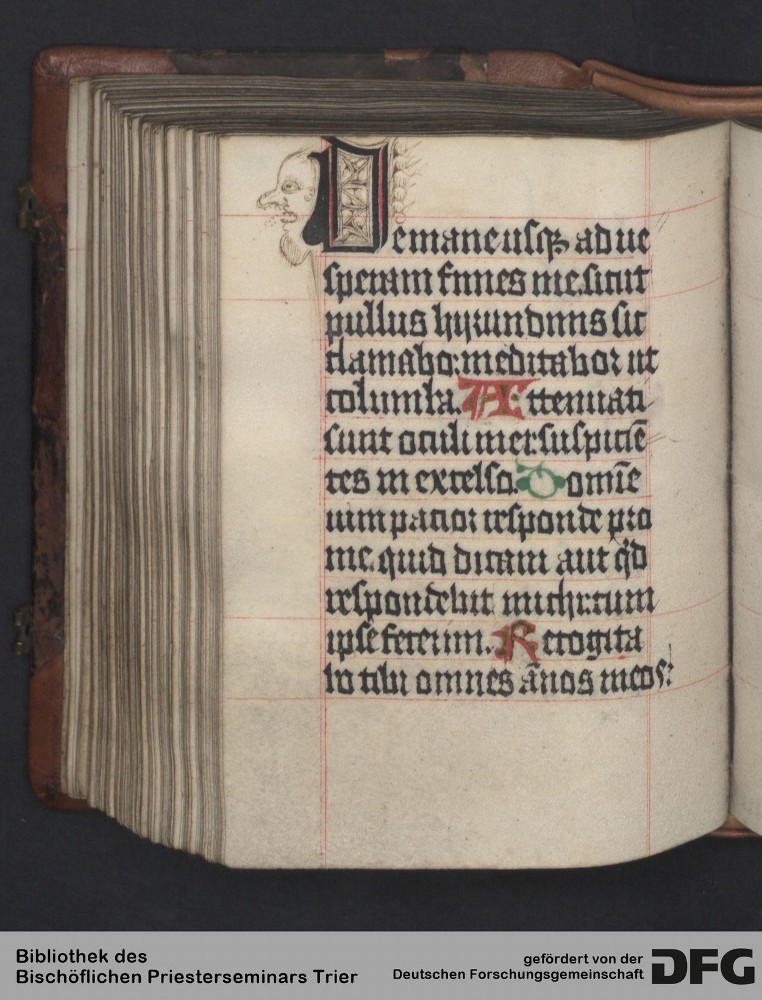 De mane usqꝫ ad ue
speram finies me. sicut
pullus hyrundinis sic
clamabo: meditabor ut
columba. Attenuati
sunt oculi mei: suspiciē
tes in excelso. Domīe
uim patior responde pro
me. quid dicam aut qͥd
respondebit michi: cum
ipse fecerim. Recogita
bo tibi omnes ānos meos:
Bibliothek des
Bischöflichen Priesterseminars Trier
gefördert von der
Deutschen Forschungsgemeinschaft
DFG